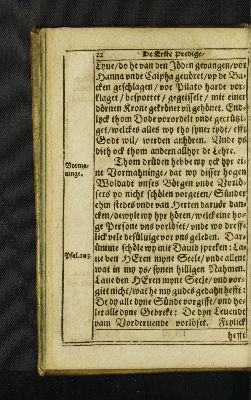 22 De Erste Predige/
Lyue/ do he van den Jöden gevangen/ vor
Hanna unde Caipha geuöret/ up de Bac-
cken geschlagen/ vor Pilato harde vor-
klaget/ bespottet/ gegeisselt/ mit einer
dörnen Krone gekrönet un gehönet. End-
lyck thom Dode vorordelt unde gecrützi-
get/ welckes alles wy tho syner tydt/
Godt wil/ werden anhören. Unde
dith ock thom andern allhyr de Lehre.
Thom drüdden hebbe wy ock hyr ei-
ne Vormahninge/ dat wy disser hogen
Woldadt unses Börgen unde Vorlö-
sers yo nicht schölen vorgeten/ Sünder
ehm stedes unde van Herten darvör dan-
cken/ dewyle wy hyr hören/ welck eine ho-
ge Persone uns vorlöset/ unde wo dreff-
lick vele desüluige vor uns geleden. Dar-
ümme schöle wy mit David spreken: La-
ue den HEren myne Seele/ unde allent
wat in my ys/ synen hilligen Nahmen.
Laue den HEren myne Seele/ und vor-
gitt nicht/ wat he my gudes gedahn hefft:
De dy alle dyne Sünde vorgifft/ und he-
let alle dyne Gebreke: De dyn Leuendt
vam Vorderuende vorlöset.
hefft
Vorma-
ninge.
Psal.103